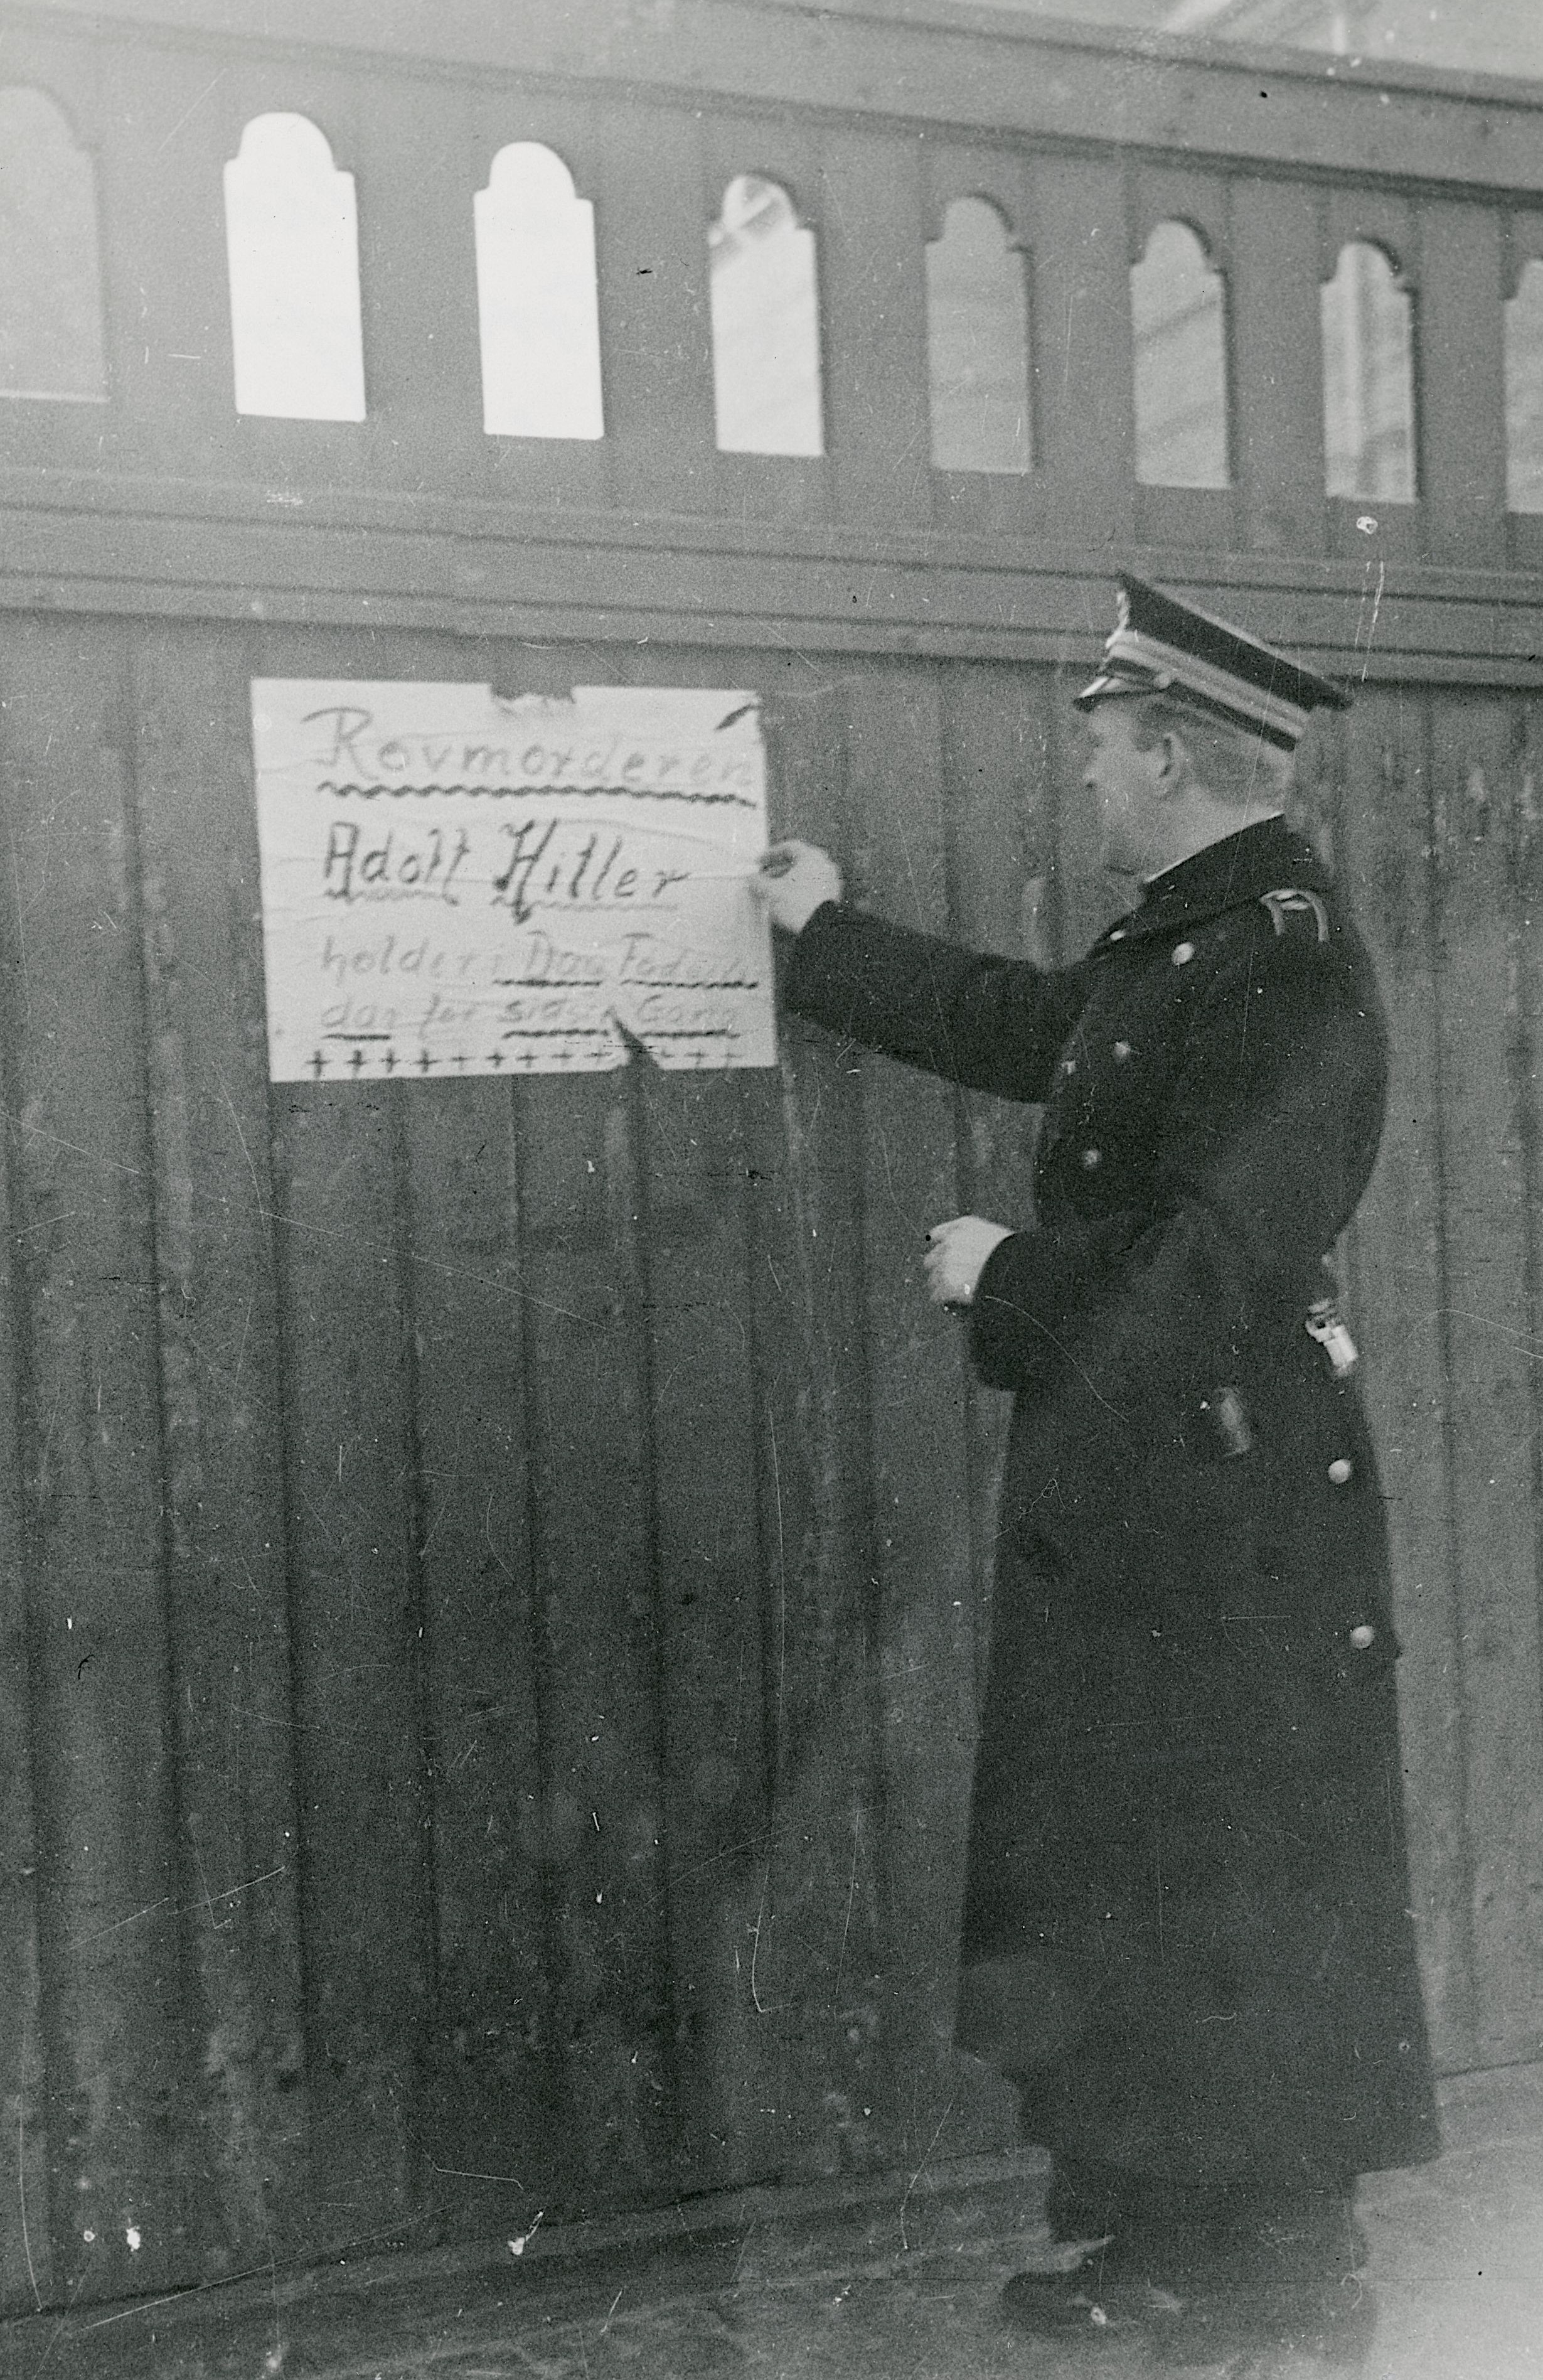 Rovmorderen
Adolf Hitler
holder i Dag Fødsels
dag for sidste Gang
++++++++++++